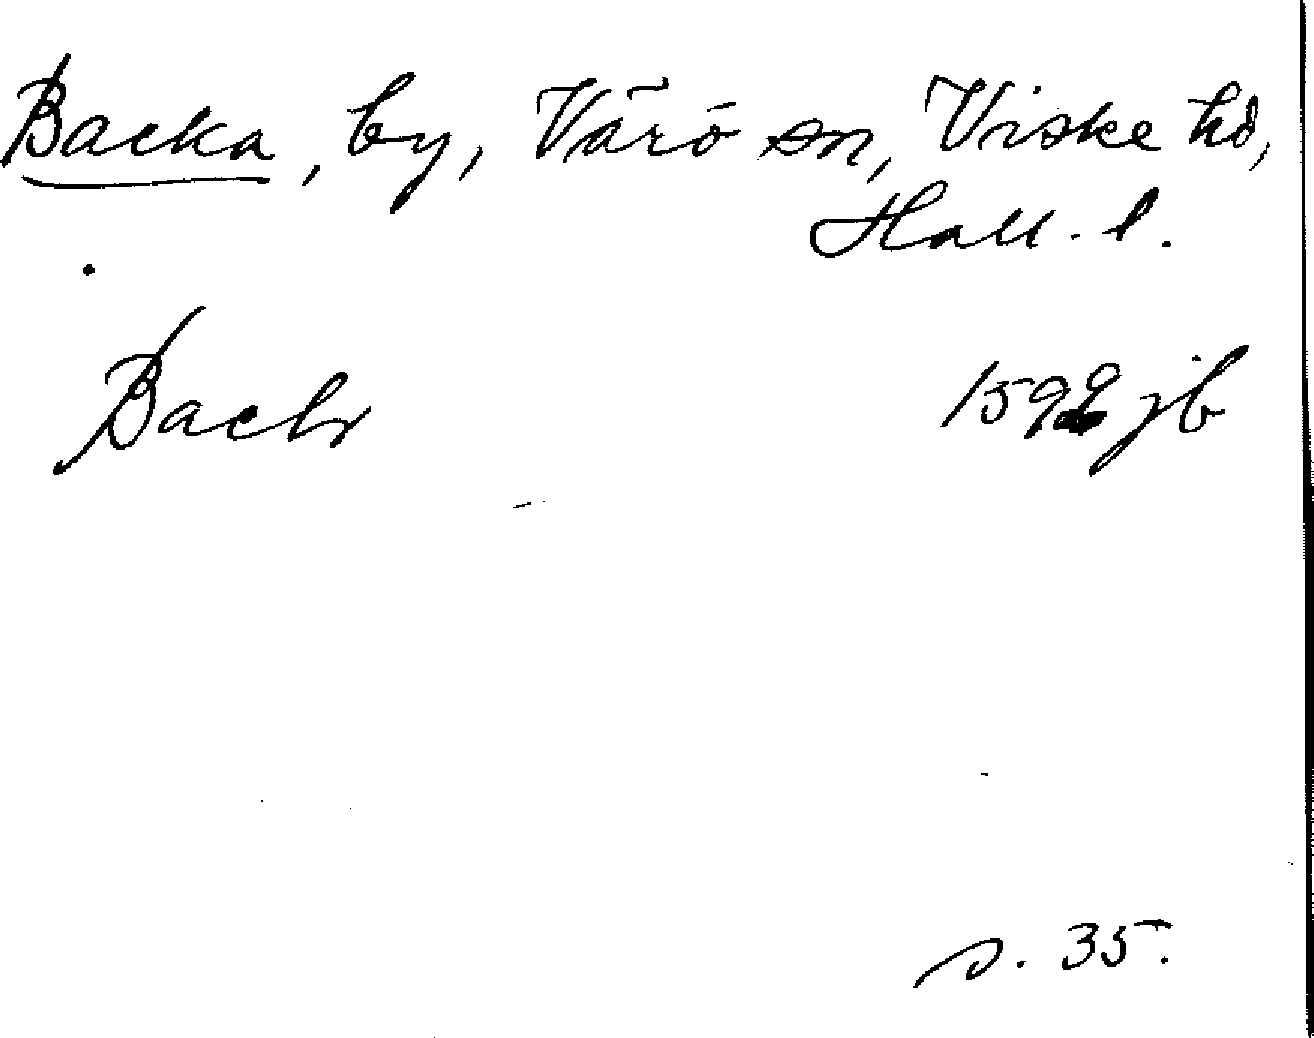 Backa, by, Värö sn, Viske hd,
Hall. l.
Back 1592 jb
s. 35.